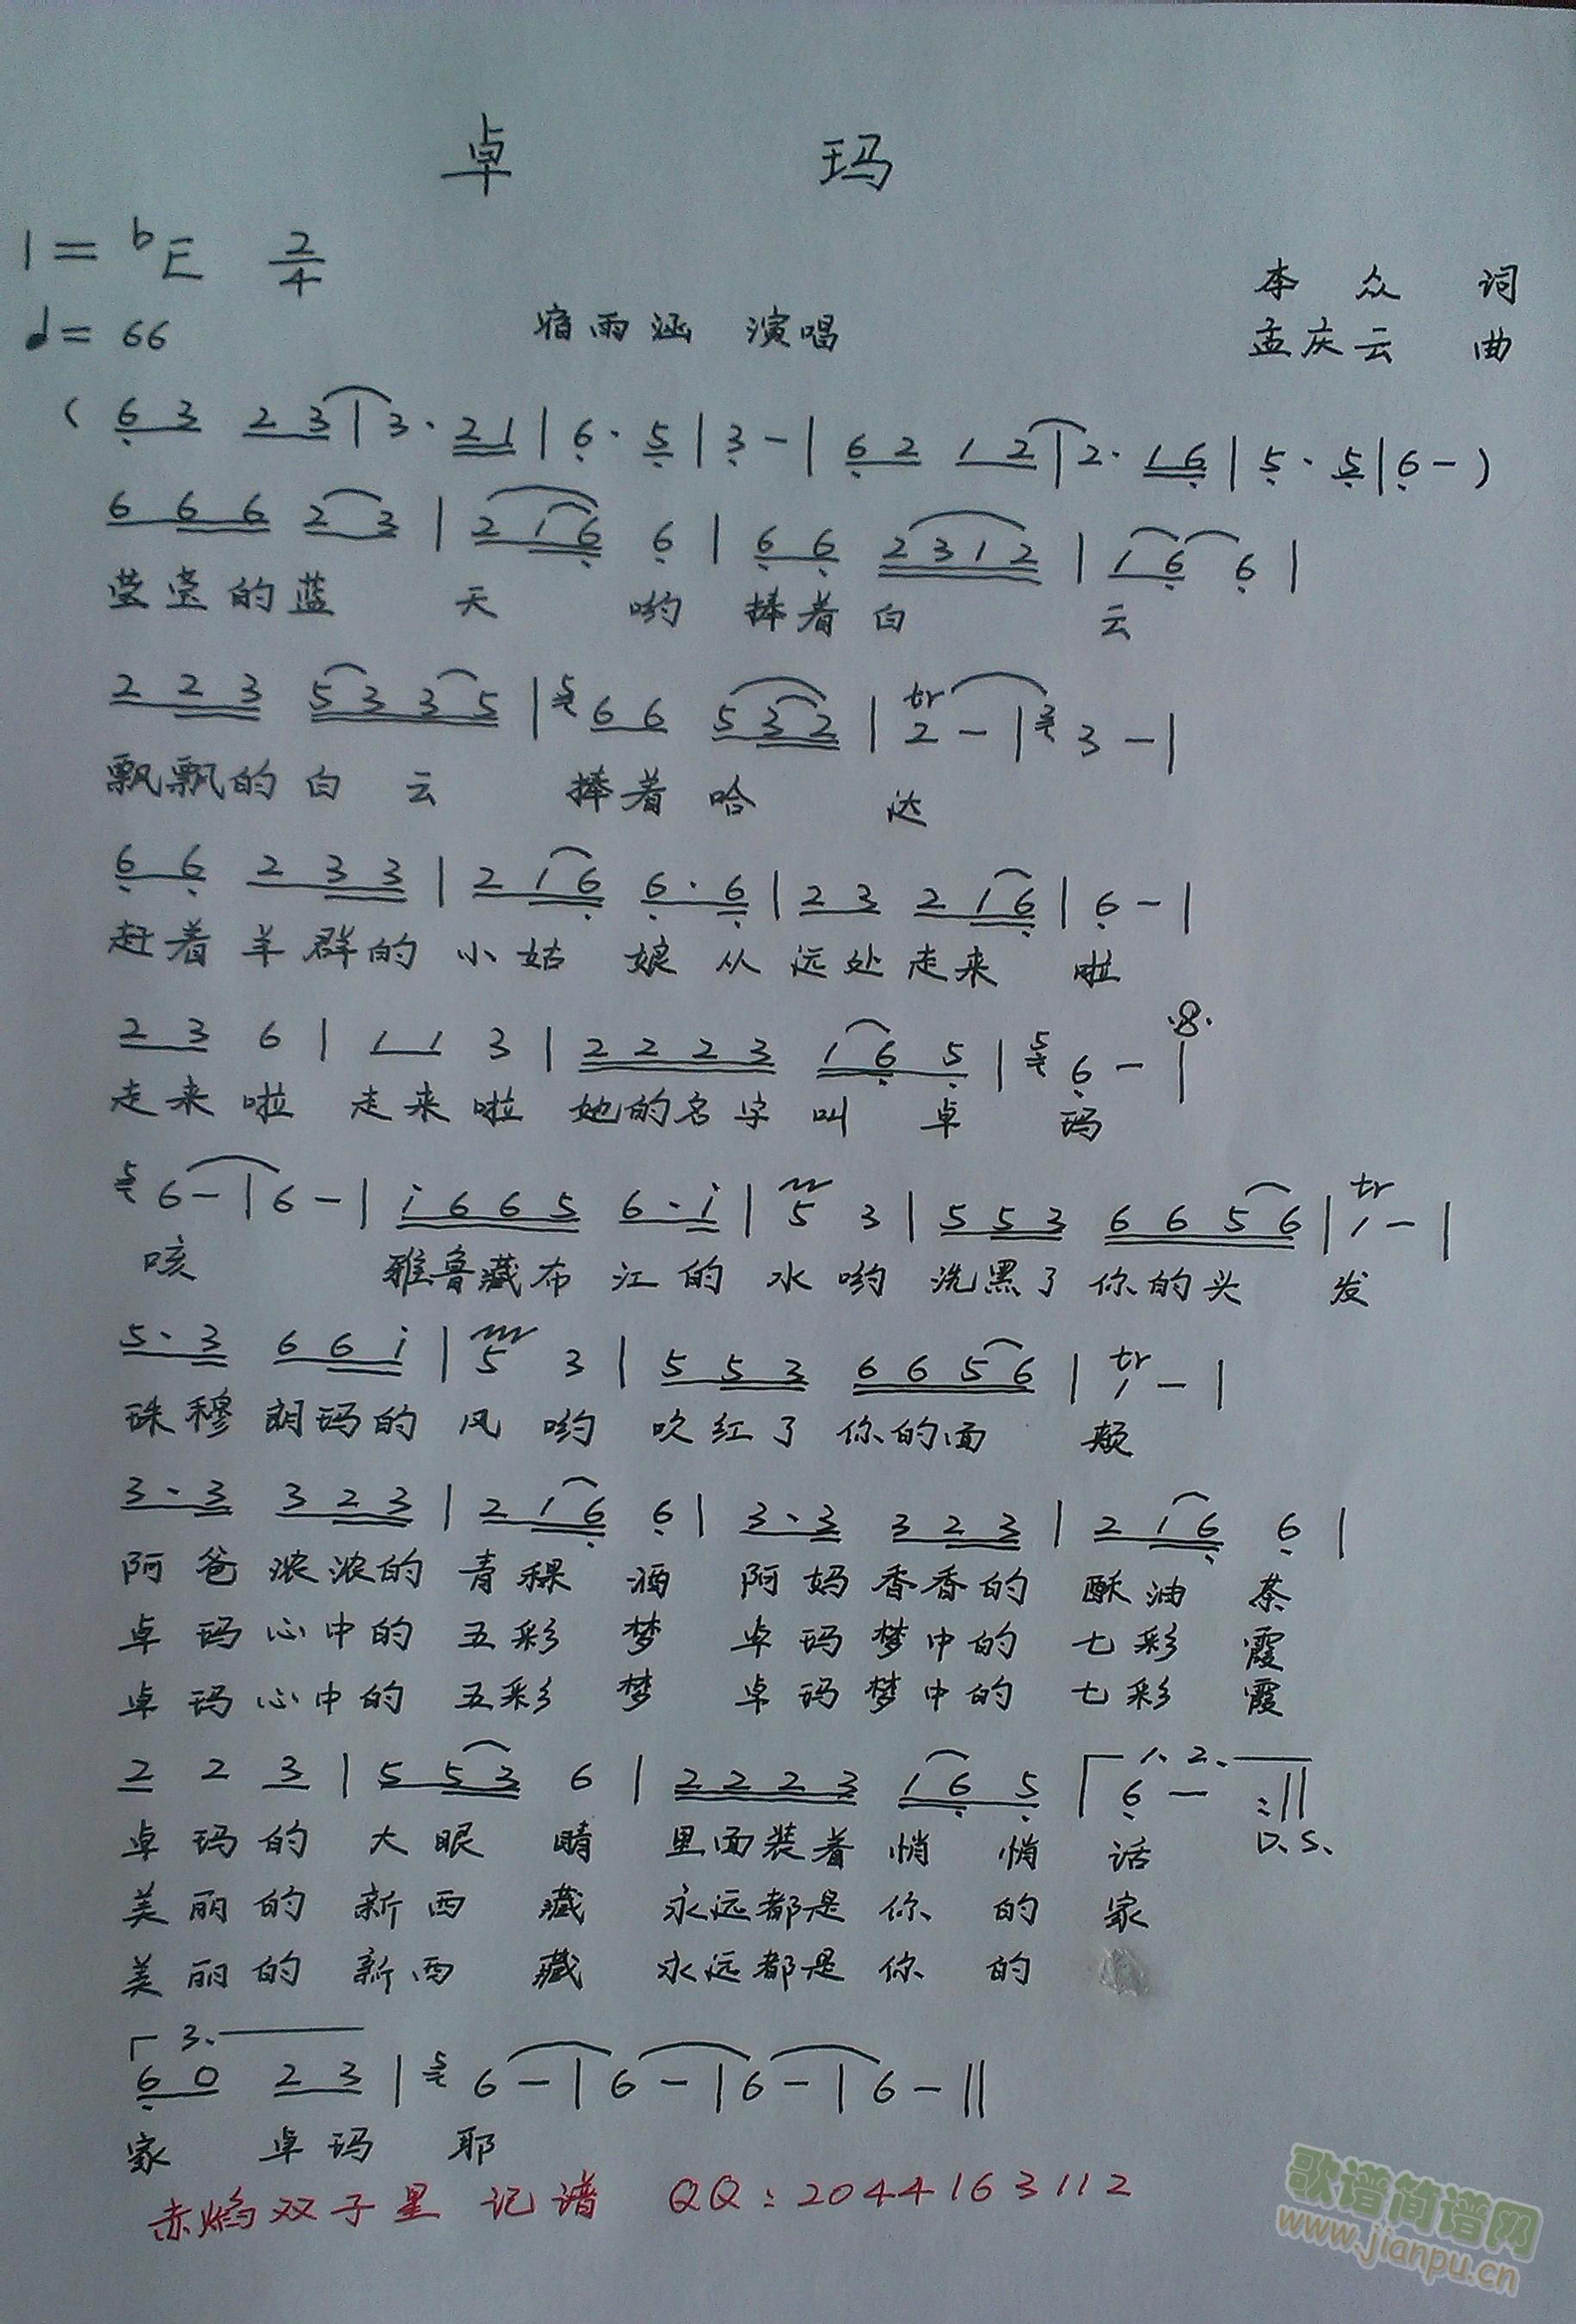 卓 玛
1=bE 2/4
♩=66
宿雨涵 演唱
李众 词
孟庆云 曲
( 6 3 2 3 | 3· 2 1 | 6· 5 | 3 - | 6 2 1 2 | 2· 1 6 | 5· 5 | 6 - )
6 6 6 2 3 | 2 1 6 6 | 6 6 2 3 1 2 | 1 6 6 |
莹莹的蓝 天 哟 捧着白 云
2 2 3 5 3 3 5 | 5 6 6 5 3 2 | tr 2 - | 2 3 - |
飘飘的白 云 捧着哈 达
6 6 2 3 3 | 2 1 6 6· 6 | 2 3 2 1 6 | 6 - |
赶着羊群的小姑 娘从远处走来 啦
2 3 6 | 1 1 3 | 2 2 2 3 1 6 5 | 5 6 - |
走来啦 走来啦 她的名字叫 卓 玛
5 6 - | 6 - | i 6 6 5 6· i | 5 3 | 5 5 3 6 6 5 6 | tr 1 - |
咳 雅鲁藏布江的水哟 洗黑了你的头 发
5· 3 6 6 i | 5 3 | 5 5 3 6 6 5 6 | tr 1 - |
珠穆朗玛的风哟 吹红了你的面 颊
3· 3 3 2 3 | 2 1 6 6 | 3· 3 3 2 3 | 2 1 6 6 |
阿爸浓浓的青稞 酒 阿妈香香的酥油 茶
卓玛心中的五彩 梦 卓玛梦中的七彩 霞
卓玛心中的五彩 梦 卓玛梦中的七彩 霞
2 2 3 | 5 5 3 6 | 2 2 2 3 1 6 5 | 1、2、 6 - :||
卓玛的大眼 睛 里面装着悄 悄 话 D.S.
美丽的新西 藏 永远都是你 的 家
美丽的新西 藏 永远都是你 的
3、
6 0 2 3 | 5 6 - | 6 - | 6 - | 6 - ||
家 卓玛 耶
赤焰双子星 记谱 QQ:2044163112
歌谱简谱网
www.jianpu.cn